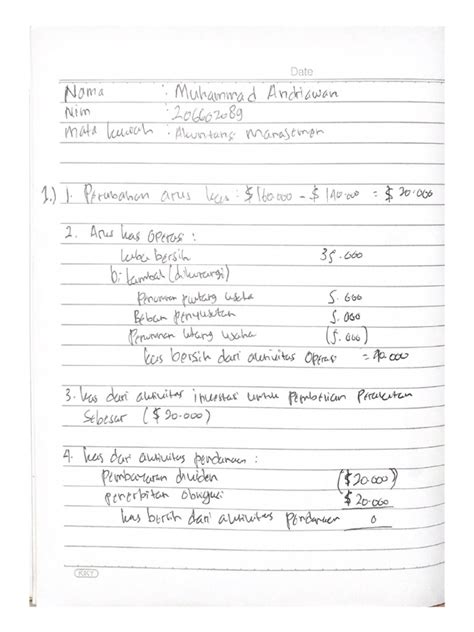 Date
Nama : Muhammad Andriawan
Nim : 206602089
Mata kuliah : Akuntansi Manajemen
1.) 1. Perubahan arus kas : $160.000 - $140.000 = $20.000
2. Arus kas Operasi :
laba bersih 35.000
Ditambah (dikurangi)
Penurunan piutang usaha 5.000
Beban penyusutan 5.000
Penurunan utang usaha (5.000)
kas bersih dari aktivitas Operasi = 40.000
3. kas dari aktivitas investasi untuk Pembelian Peralatan
Sebesar ($20.000)
4. kas dari aktivitas pendanaan :
Pembayaran dividen ($20.000)
penerbitan obligasi $20.000
kas bersih dari aktivitas Pendanaan 0
KIKY